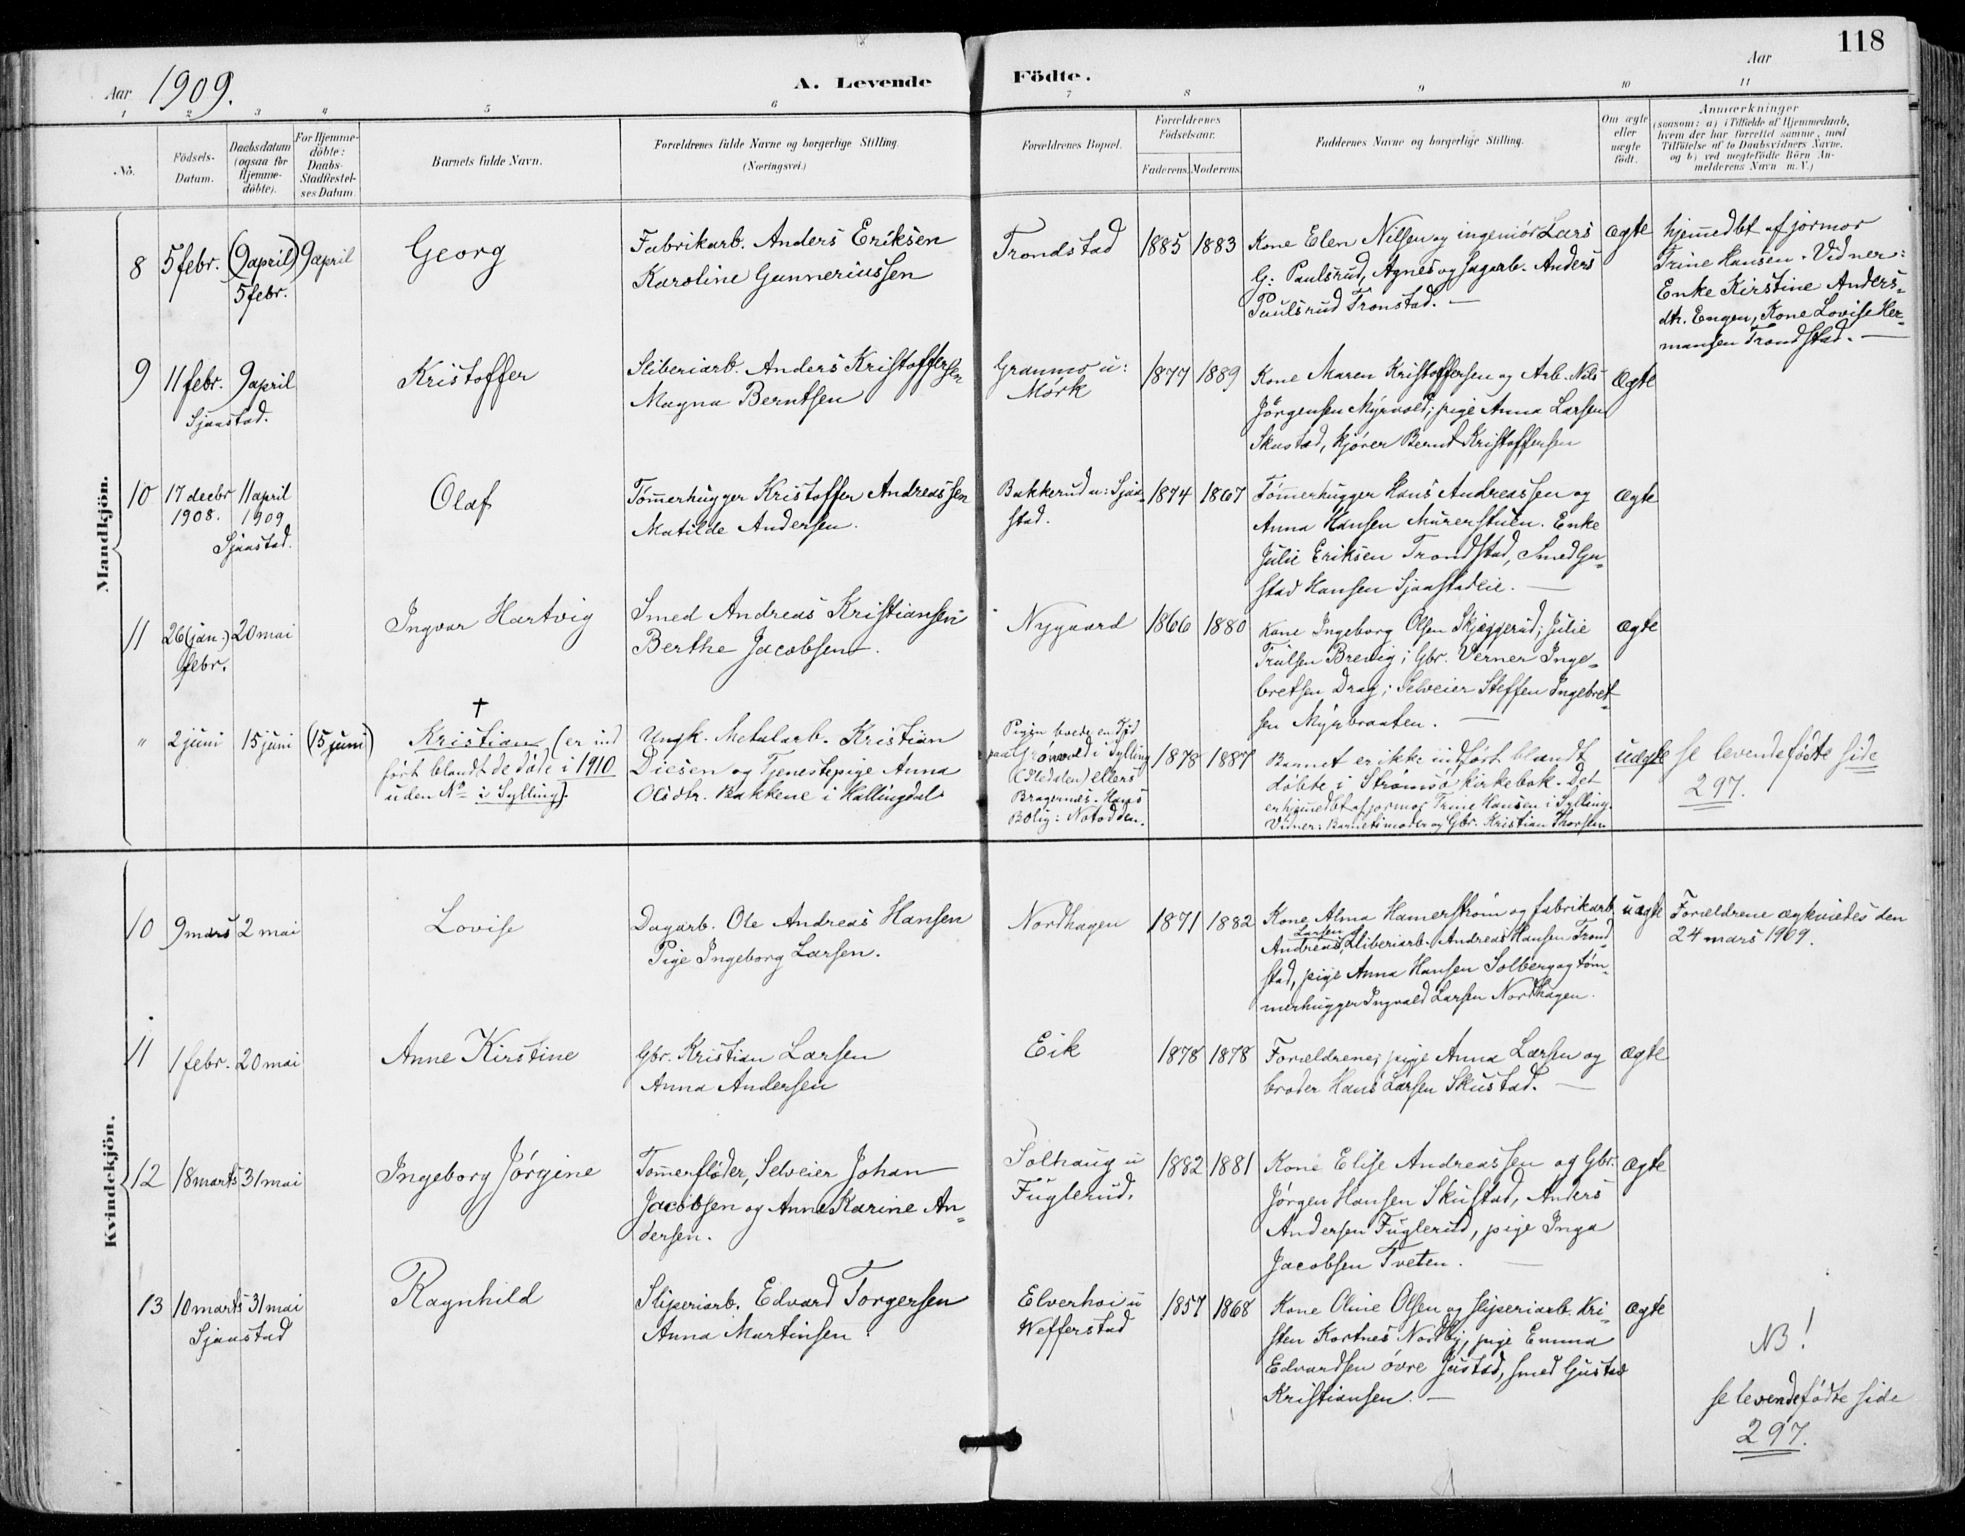 118
Aar 1909.
A. Levende Födte.
Aar
1 2 3 4 5 6 7 8 9 10 11
No.
Födsels-Datum.
Daabsdatum (ogsaa for Hjemmedöbte).
For Hjemmedöbte: Daabs-Stadfæstelses Datum
Barnets fulde Navn.
Forældrenes fulde Navne og borgerlige Stilling. (Næringsvei.)
Forældrenes Bopæl.
Forældrenes Födselsaar.
Faderens. Moderens.
Faddernes Navne og borgerlige Stilling.
Om ægte eller uægte født.
Anmærkninger
(saasom: a) i Tilfælde af Hjemmedaab,
hvem der har forrettet samme, med
Tilföielse af to Daabsvidners Navne,
og b) ved uægtefödte Börn An-
melderens Navn m. V.)
Mandkjön.
8 5 febr. (9 april) 5 febr. 9 april
Georg
Fabrikarb. Anders Eriksen
Karoline Gunneriussen
Trondstad 1885 1883
Kone Elen Nilsen og ingeniør Lars
G: Paulsrud, Agnes og sagarb. Anders
Paulsrud Tronstad. —
ægte
hjemedbt af jormor
Trine Hansen. Vidner:
Enke Kirstine Anders-
dtr. Engen, Kone Lovise Her-
mansen Trondstad. —
9 11 febr. 9 april
Sjaastad.
Kristoffer
Sliberiarb. Anders Kristoffersen
Magna Berntsen
Granmo u:
Mørk
1877 1889
Kone Maren Kristoffersen og Arb. Nils
Jørgensen Myrvold; pige Anna Larsen
Skustad, kjører Bernt Kristoffersen
Ægte
10 17 decbr 1908. 11 april 1909
Sjaastad.
Olaf
Tømerhugger Kristoffer Andreassen
Matilde Andersen.
Bakkerud u: Sjaa-
stad.
1874 1867
Tømerhugger Hans Andreassen og
Anna Hansen Murerstuen. Enke
Julie Eriksen Trondstad, Smed Gu-
stad Hansen Sjaastadeie. —
ægte
11 26 (jan.) febr. 20 mai
Ingvar Hartvig
Smed Andreas Kristiansen
Berthe Jacobsen.
Nygaard 1866 1880
Kone Ingeborg Olsen Skjeggerud; Julie
Trulsen Brevig; Gbr. Verner Inge-
bretsen Drag; Selveier Steffen Ingebret-
sen Myrbraaten. —
ægte
" 2 juni 15 juni (15 juni)
†
Kristian, (er ind
ført blandt de døde i 1910
uden No i Sylling).
Ungk. Metalarb. Kristian
Diesen og Tjenestepige Anna
Olsdtr. Bakkene i Hallingdal
Pigen boede en Tid
paa Grønvold i Sylling
ellers
Bragernæs. Hans
Bolig: Notodden.
1878 1887
Barnet er ikke indført blandt
døbte i Strømsø kirkebok. Det
er hjemedbt af jormor Trine Hansen i Sylling.
Vidner: Barnets moder og Gbr. Kristian Thorsen
uægte
se levendefødte side
297.
Kvindekjön.
10 9 mars 2 mai
Lovise
Dagarb. Ole Andreas Hansen
Pige Ingeborg Larsen.
Nordhagen 1871 1882
Kone Alma Hamerstrøm og fabrikarb.
Larsen
Andreas, Sliberiarb. Andreas Hansen Trond-
stad, pige Anna Hansen Solberg og tøm-
merhugger Ingvald Larsen Nordhagen.
uægte
Forældrene ægteviedes den
24 mars 1909.
11 1 febr. 20 mai
Anne Kirstine
Gbr. Kristian Larsen
Anna Andersen
Eik 1878 1878
Forældrene; pige Anna Larsen og
broder Hans Larsen Skustad. —
Ægte
12 18 marts 31 mai
Ingeborg Jørgine
Tømerfløder, Selveier Johan
Jacobsen og Anne Karine An-
dersen.
Solhaug u
Fuglerud.
1882 1881
Kone Elise Andreassen og Gbr.
Jørgen Hansen Skustad, Anders
Andersen Fuglerud, pige Inga
Jacobsen Tveten. —
Ægte
13 10 marts 31 mai
Sjaastad
Ragnhild
Sliperiarb. Edvard Torgersen
Anna Martinsen.
Elverhøi u
Wefferstad
1857 1868
Kone Oline Olsen og sliperiarb. Kri-
sten Kortnes Nordby, pige Emma
Edvardsen øvre Justad, smed Gustav
Kristiansen. —
ægte
NB!
se levendefødte side
297.